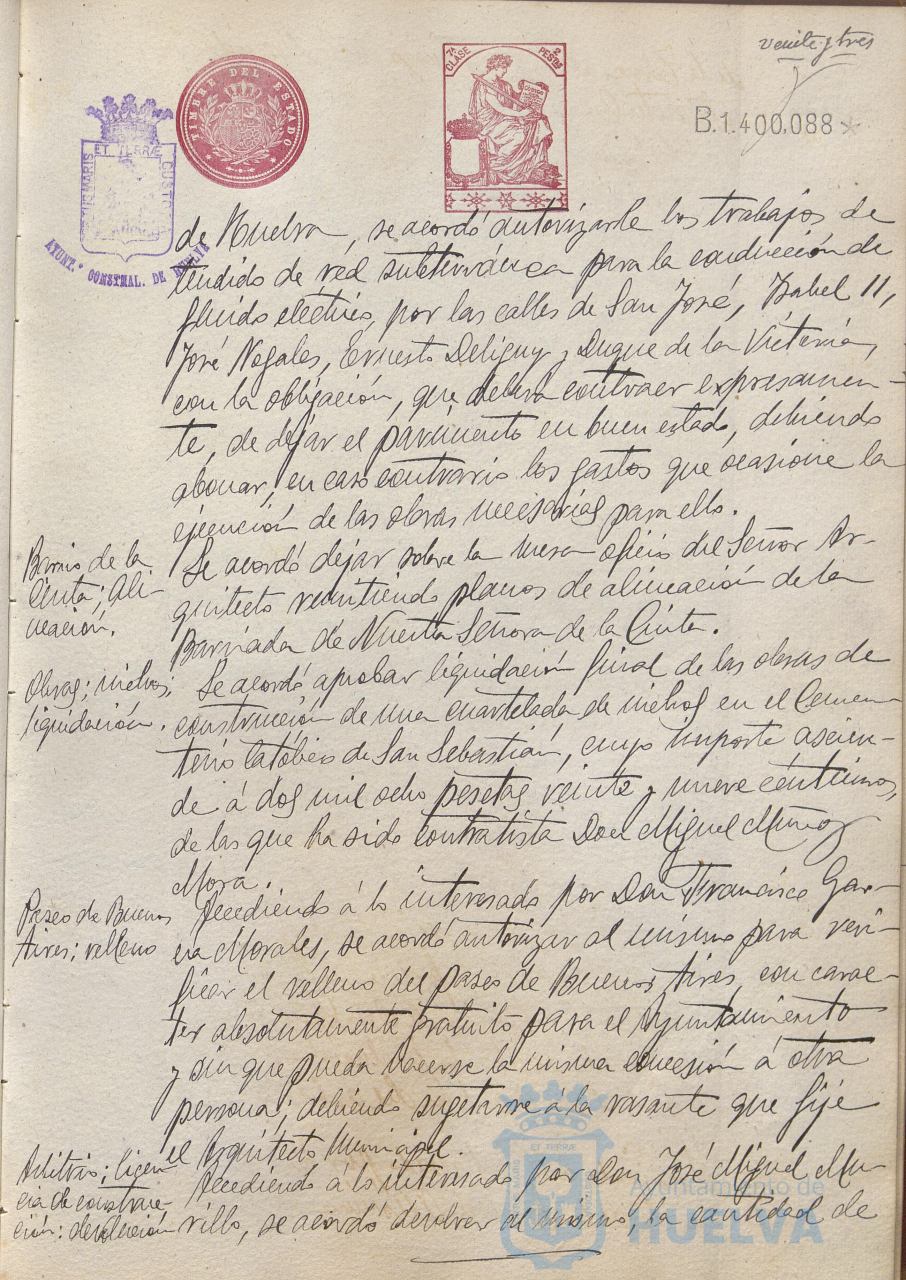 veinte y tres
TIMBRE DEL ESTADO
7ª CLASE
2 PESETAS
B.1.400.088
PORTUS MARIS ET TERRÆ CUSTODIA
AYUNT.º CONSTNAL. DE HUELVA
de Huelva, se acordó autorizarle los trabajos de
tendido de red subterránea para la conducción de
fluido electrico, por las calles de San José, Isabel II,
José Nogales, Ernesto Deligny y Duque de la Victoria,
con la obligación, que deberá contraer expresamen-
te, de dejar el pavimento en buen estado, debiendo
abonar, en caso contrario los gastos que ocasione la
ejecución de las obras necesarias para ello.
Barrio de la
Cinta; Ali-
neación.
Se acordó dejar sobre la mesa oficio del Señor Ar-
quitecto remitiendo planos de alineación de la
Barriada de Nuestra Señora de la Cinta.
Obras; nichos;
liquidación.
Se acordó aprobar liquidación final de las obras de
construcción de una cuartelada de nichos en el Cemen-
terio Católico de San Sebastián, cuyo importe ascien-
de á dos mil ocho pesetas veinte y nueve céntimos,
de las que ha sido contratista Don Miguel Muñoz
Mora.
Paseo de Buenos
Aires; relleno
Accediendo á lo interesado por Don Francisco Gar-
cia Morales, se acordó autorizar al mismo para veri-
ficar el relleno del paseo de Buenos Aires, con carac-
ter absolutamente gratuito para el Ayuntamiento
y sin que pueda hacerse la misma concesión á otra
persona; debiendo sugetarse á la rasante que fije
el Arquitecto Municipal.
Arbitrio; licen-
cia de construc-
ción: devolución
Accediendo á lo interesado por Don José Miguel Mu-
rillo, se acordó devolver al mismo, la cantidad de
Ayuntamiento de
HUELVA